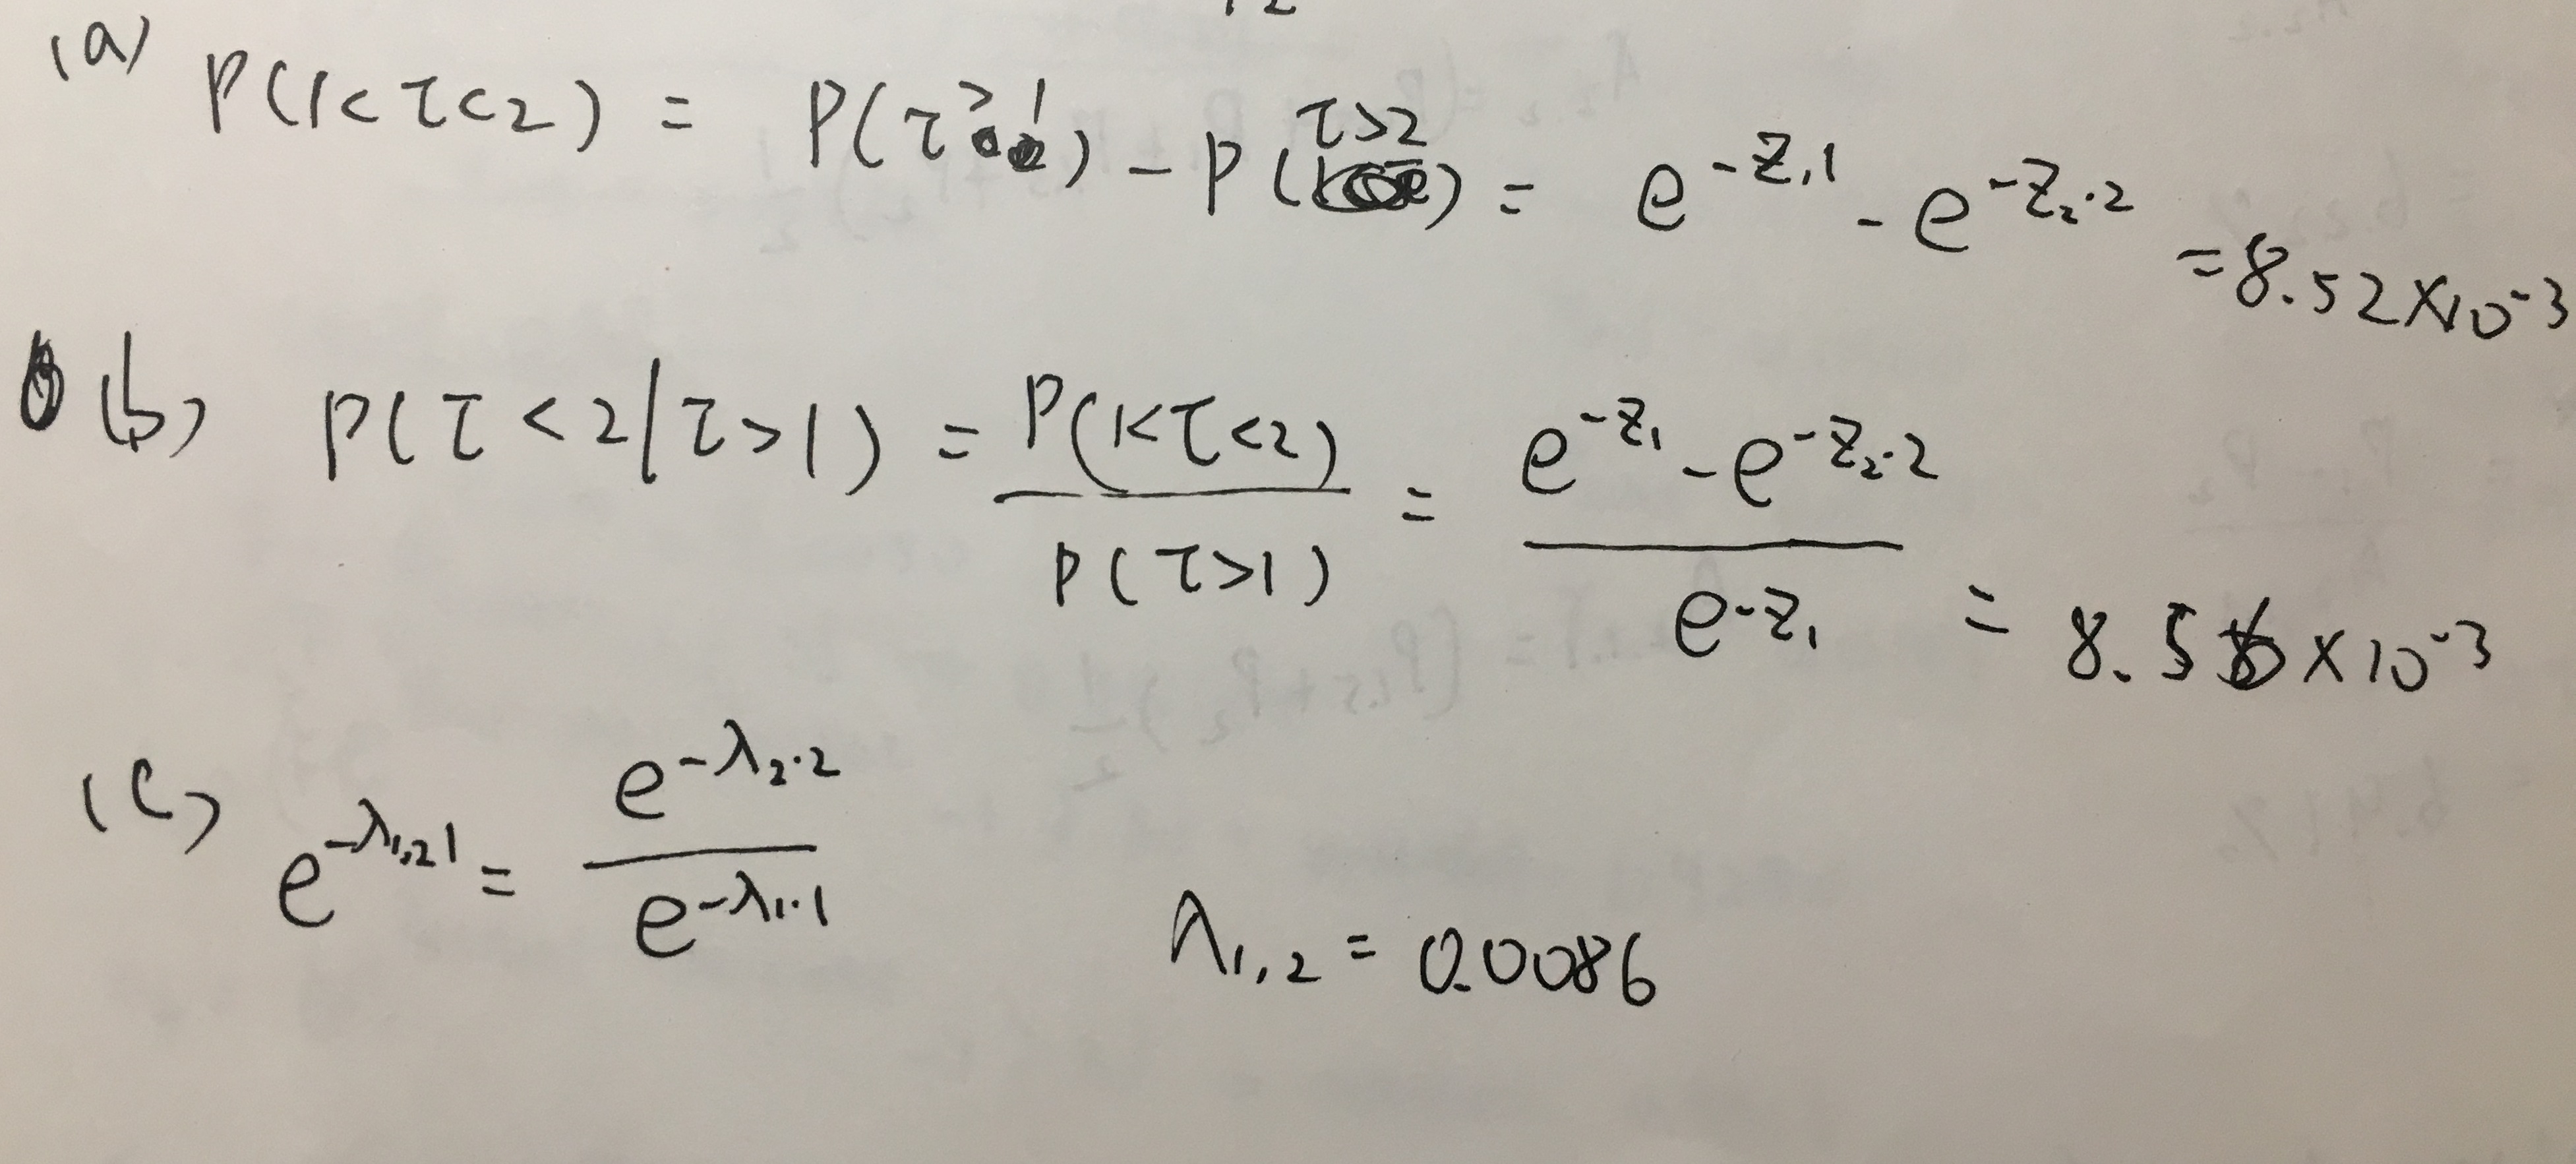 (a) P(1<τ<2) = P(τ>1) - P(τ>2) = e^{-z_1 1} - e^{-z_2·2} = 8.52×10^{-3}
(b) P(τ<2|τ>1) = P(1<τ<2) / P(τ>1) = (e^{-z_1} - e^{-z_2·2}) / e^{-z_1} = 8.56×10^{-3}
(c) e^{-λ_{1,2}1} = e^{-λ_2·2} / e^{-λ_1·1} λ_{1,2} = 0.0086